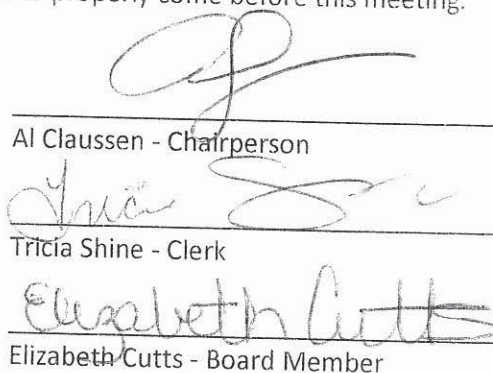 properly come before this meeting.
Al Claussen - Chairperson
Tricia S
Tricia Shine - Clerk
Elizabeth Cutts
Elizabeth Cutts - Board Member